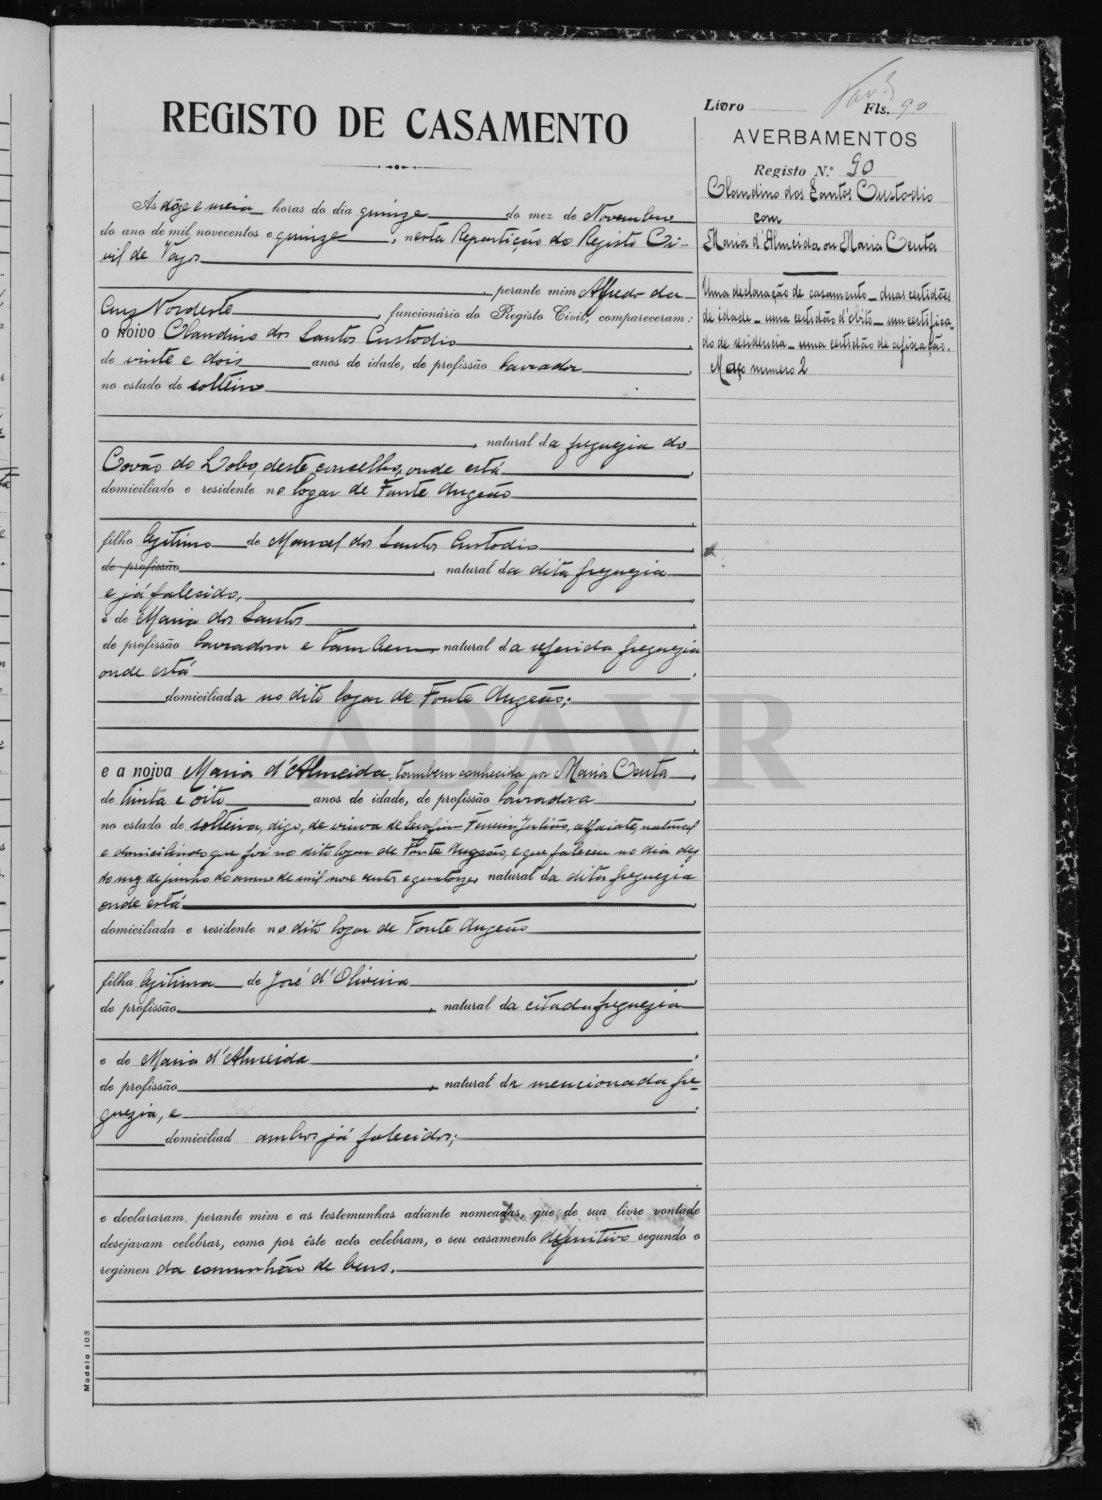 Livro
Fls. 90
REGISTO DE CASAMENTO
AVERBAMENTOS
Registo N.º 90
Claudino dos Santos Custodio
com
Maria d'Almeida ou Maria Ceuta
Uma declaração de casamento _ duas certidões
de idade _ uma certidão d'obito _ um certifica-
do de residencia _ uma certidão de afixação.
Maço numero 2
Ás dôze e meia horas do dia quinze do mez de Novembro
do ano de mil novecentos e quinze, nesta Repartição do Registo Ci-
vil de Vagos
, perante mim Alfredo da
Cruz Nordeste, funcionário do Registo Civil, compareceram:
o noivo Claudino dos Santos Custodio
de vinte e dois anos de idade, de profissão lavrador
no estado de solteiro
, natural da freguezia do
Covão do Lobo, deste concelho, onde está
domiciliado e residente no logar de Fonte Angeão
filho legitimo de Manoel dos Santos Custodio
de profissão, natural da dita freguezia
e já falecido,
e de Maria dos Santos
de profissão lavradora e tambem natural da referida freguezia
onde está
domiciliada no dito logar de Fonte Angeão;
ADAVR
e a noiva Maria d'Almeida, tambem conhecida por Maria Ceuta
de trinta e oito anos de idade, de profissão lavradora
no estado de solteira, digo, de viuva de Serafim Ferreira Julião, alfaiate, natural
e domiciliado que foi no dito logar de Fonte Angeão, e que faleceu no dia dez
do mez de junho do anno de mil nove centos e quatorze, natural da dita freguezia
onde está
domiciliada e residente no dito logar de Fonte Angeão
filha legitima de José d'Oliveira
de profissão, natural da citada freguezia
e de Maria d'Almeida
de profissão, natural da mencionada fre-
guezia, e
domiciliad ambos já falecidos;
e declararam, perante mim e as testemunhas adiante nomeadas, que de sua livre vontade
desejavam celebrar, como por êste acto celebram, o seu casamento definitivo segundo o
regimen da comunhão de bens.
Modelo 103